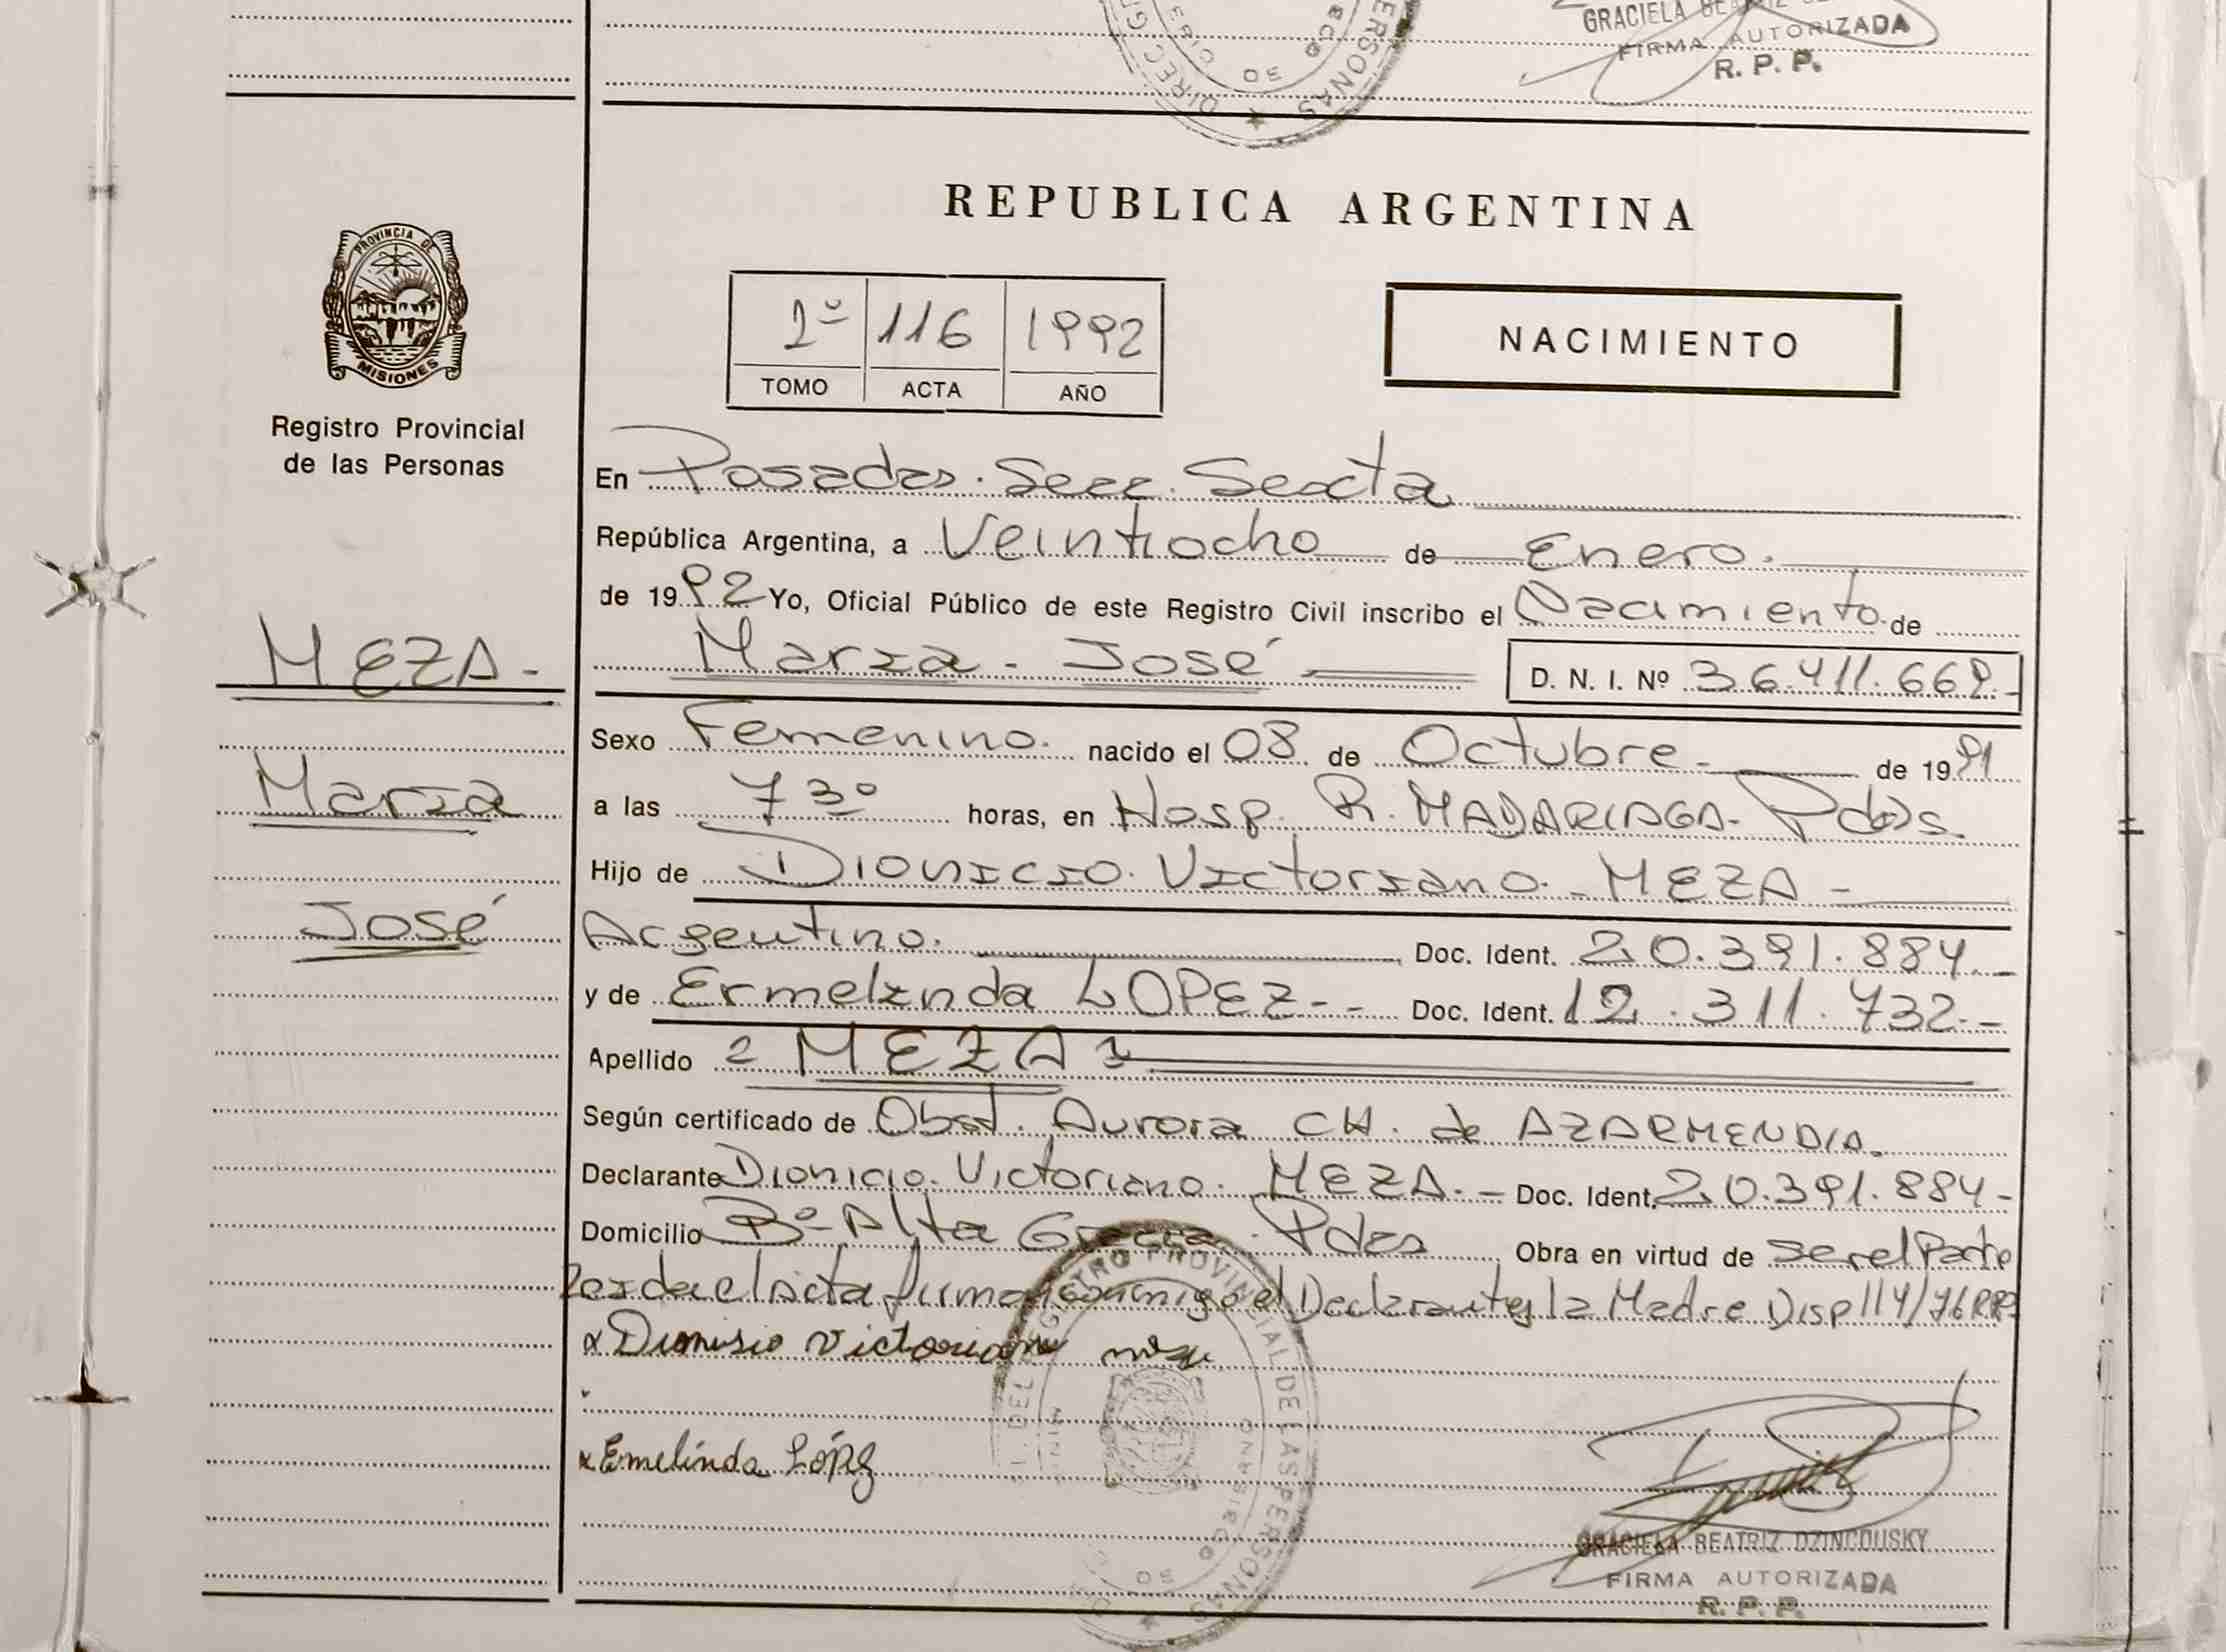 GRACIELA
FIRMA AUTORIZADA
R. P. P.
PERSONAS
DIREC
PROVINCIA DE
MISIONES
Registro Provincial
de las Personas
MEZA -
Marza
José
REPUBLICA ARGENTINA
1º 116 1992
TOMO ACTA AÑO
NACIMIENTO
En Posadas. Secc. Sexta
República Argentina, a Veintiocho de Enero.
de 1992 Yo, Oficial Público de este Registro Civil inscribo el Nacimiento de
Maria - José D. N. I. Nº 36.411.669.-
Sexo Femenino. nacido el 08 de Octubre - de 1991
a las 7 3º horas, en Hosp. R. MADARIAGA - Pdas.
Hijo de Dionicio. Victoriano. - MEZA -
Argentino. Doc. Ident. 20.391.884.-
y de Ermelinda LOPEZ - - Doc. Ident. 12.311.732.-
Apellido MEZA
Según certificado de Obst. Aurora CH. de AZARMENDIA.
Declarante Dionicio. Victoriano. MEZA. - Doc. Ident. 20.391.884 -
Domicilio Bº Alta Gracia. Pdas Obra en virtud de ser el Padre
Leida el acta firman conmigo el Declarante y la Madre Disp 114/76 RPP
x Dionisio Victoriano meza
x Emelinda López
REGISTRO PROVINCIAL DE LAS PERSONAS
GRACIELA BEATRIZ DZINCOUSKY
FIRMA AUTORIZADA
R. P. P.